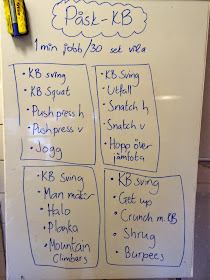 Påsk-KB
1 min jobb/30 sek vila
• KB sving
• KB Squat
• Push press h
• Push press v
• Jogg
• KB Sving
• Utfall
• Snatch h
• Snatch v
• Hopp över
jämfota
• KB Sving
• Man maker
• Halo
• Planka
• Mountain
Climbars
• KB sving
• Get up
• Crunch m. KB
• Shrug
• Burpees